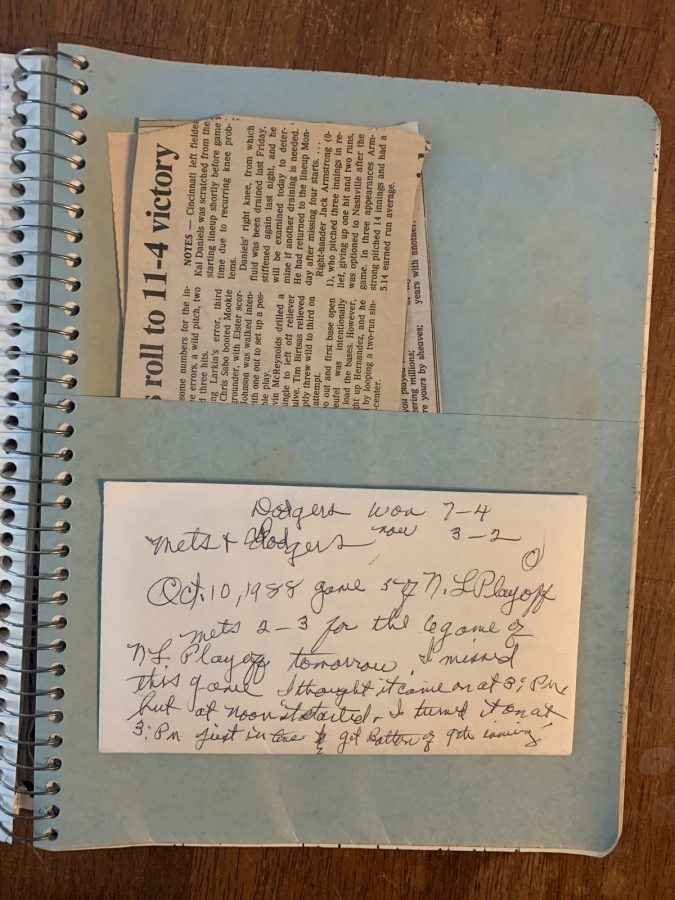 s roll to 11-4 victory
some numbers for the in-
e errors, a wild pitch, two
d three hits.
ng Larkin's error, third
Chris Sabo booted Mookie
grounder, with Elster scor-
Johnson was walked inten-
ith one out to set up a pos-
le play.
vin McReynolds drilled a
ingle to left off reliever
ulve. Tim Birtsas relieved
ptly threw wild to third on
attempt.
o out and first base open
eufel was intentionally
load the bases. However,
ght up Hernandez, and he
by looping a two-run sin-
center.
NOTES — Cincinnati left fielder
Kal Daniels was scratched from the
starting lineup shortly before game
time due to recurring knee prob-
lems.
Daniels' right knee, from which
fluid was been drained last Friday,
stiffened again last night, and he
will be examined today to deter-
mine if another draining is needed.
He had returned to the lineup Mon-
day after missing four starts. . . .
Right-hander Jack Armstrong (0-
1), who pitched three innings in re-
lief, giving up one hit and two runs,
was optioned to Nashville after the
game. In three appearances Arm-
strong pitched 14 innings and had a
5.14 earned run average.
you played
ering millions;
re yours by sheaves;
years with another
Dodgers won 7-4
Mets & Dodgers now 3-2
Oct. 10, 1988 game 5 of N.L Playoff
Mets 2-3 for the 6 game of
N L. Playoff tomorrow. I missed
this game I thought it came on at 3: Pm
but at noon it started. I turned it on at
3: Pm just in time to get Bottom of 9th inning